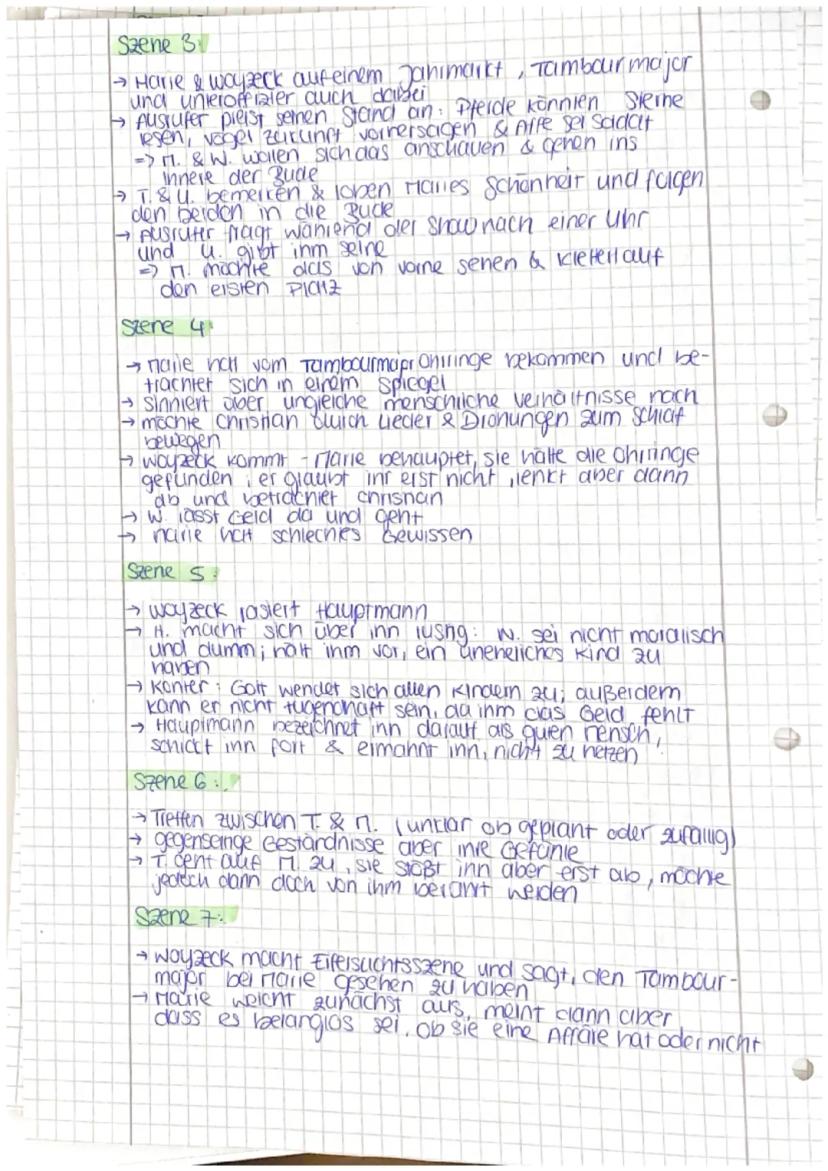 Szene 3:
→ Marie & Woyzeck auf einem Jahrmarkt, Tambourmajor
und Unteroffizier auch dabei
→ Ausrufer preist seinen Stand an: Pferde können Sterne
lesen, Vögel Zukunft vorhersagen & Affe sei Soldat
=> M. & W. wollen sich das anschauen & gehen ins
Innere der Bude
→ T. & U. bemerken & loben Maries Schönheit und folgen
den beiden in die Bude
→ Ausrufer fragt während der Show nach einer Uhr
und U. gibt ihm seine
=> M. möchte das von vorne sehen & klettert auf
den ersten Platz
Szene 4:
→ Marie hat vom Tambourmajor Ohrringe bekommen und be-
trachtet sich in einem Spiegel
→ sinniert über ungleiche menschliche Verhältnisse nach
→ möchte Christian durch Lieder & Drohungen zum Schlaf
bewegen
→ Woyzeck kommt - Marie behauptet, sie hätte die Ohrringe
gefunden, er glaubt ihr erst nicht, lenkt aber dann
ab und betrachtet Christian
→ W. lässt Geld da und geht
→ Marie hat schlechtes Gewissen
Szene 5:
→ Woyzeck rasiert Hauptmann
→ H. macht sich über ihn lustig: W. sei nicht moralisch
und dumm; hält ihm vor, ein uneheliches Kind zu
haben
→ Konter: Gott wendet sich allen Kindern zu; außerdem
kann er nicht tugendhaft sein, da ihm das Geld fehlt
→ Hauptmann bezeichnet ihn darauf als guten Mensch,
schickt ihn fort & ermahnt ihn, nicht zu hetzen
Szene 6:
→ Treffen zwischen T. & M. (unklar ob geplant oder zufällig)
→ gegenseitige Geständnisse über ihre Gefühle
→ T. geht auf M. zu, sie stößt ihn aber erst ab, möchte
jedoch dann doch von ihm berührt werden
Szene 7:
→ Woyzeck macht Eifersuchtsszene und sagt, den Tambour-
major bei Marie gesehen zu haben
→ Marie weicht zunächst aus, meint dann aber
dass es belanglos sei, ob sie eine Affäre hat oder nicht